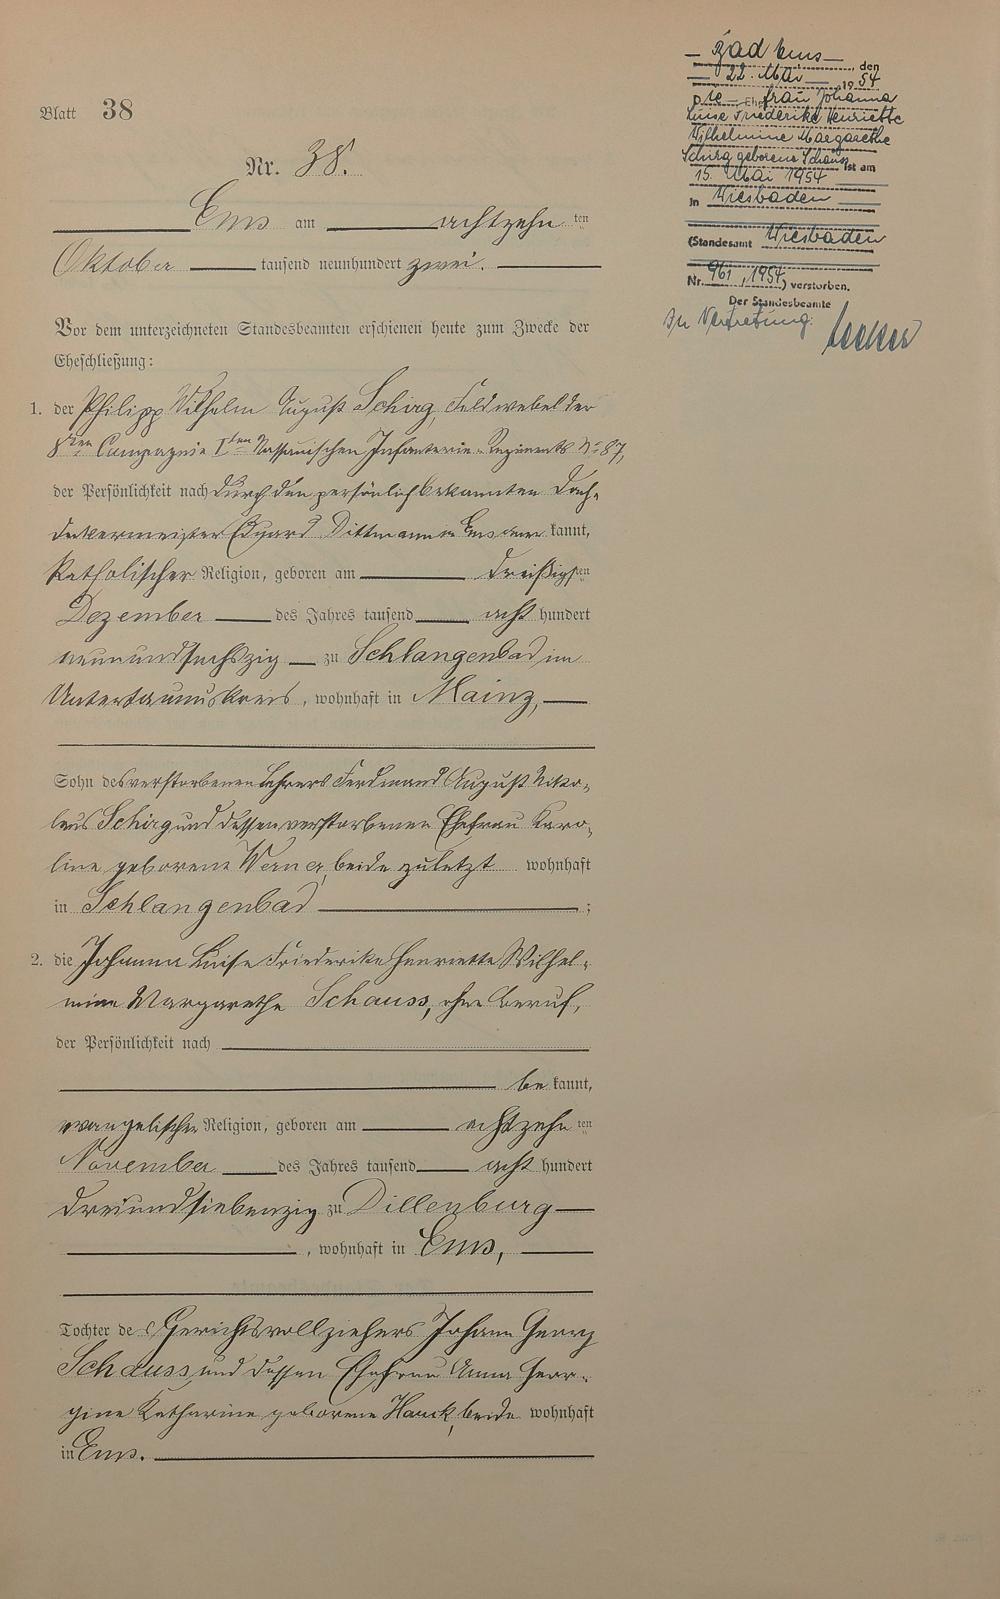 Blatt 38
Nr. 38.
Ems am achtzehnten
Oktober tausend neunhundert zwei.
Vor dem unterzeichneten Standesbeamten erschienen heute zum Zwecke der
Eheschließung:
1. der Philipp Wilhelm August Schirg, Feldwebel der
8ten Compagnie Iten Nassauischen Infanterie-Regiments No 87,
der Persönlichkeit nach durch den persönlich bekannten Dach-
deckermeister Edgard Dittmann in Ems aner kannt,
katholischer Religion, geboren am dreißigsten
Dezember des Jahres tausend acht hundert
neunundsechszig zu Schlangenbad im
Untertaunuskreis, wohnhaft in Mainz,
Sohn des verstorbenen Lehrers Ferdinand August Niko-
laus Schirg und dessen verstorbenen Ehefrau Karo-
line geborene Werner, beide zuletzt wohnhaft
in Schlangenbad ;
2. die Johanna Luise Friederike Henriette Wilhel-
mine Margarethe Schauss, ohne Beruf,
der Persönlichkeit nach
be kannt,
evangelischer Religion, geboren am achtzehnten
November des Jahres tausend acht hundert
dreiundsiebenzig zu Dillenburg
, wohnhaft in Ems,
Tochter des Gerichtsvollziehers Johann Georg
Schauss und dessen Ehefrau Anna Geor-
gine Katharine geborene Hauck, beide wohnhaft
in Ems.
Bad Ems, den
22. Mai 1954
Die Ehefrau Johanna
Luise Friederike Henriette
Wilhelmine Margarethe
Schirg geborene Schauss ist am
15. Mai 1954
in Wiesbaden
(Standesamt Wiesbaden
Nr. 961, 1954) verstorben.
Der Standesbeamte
In Vertretung: